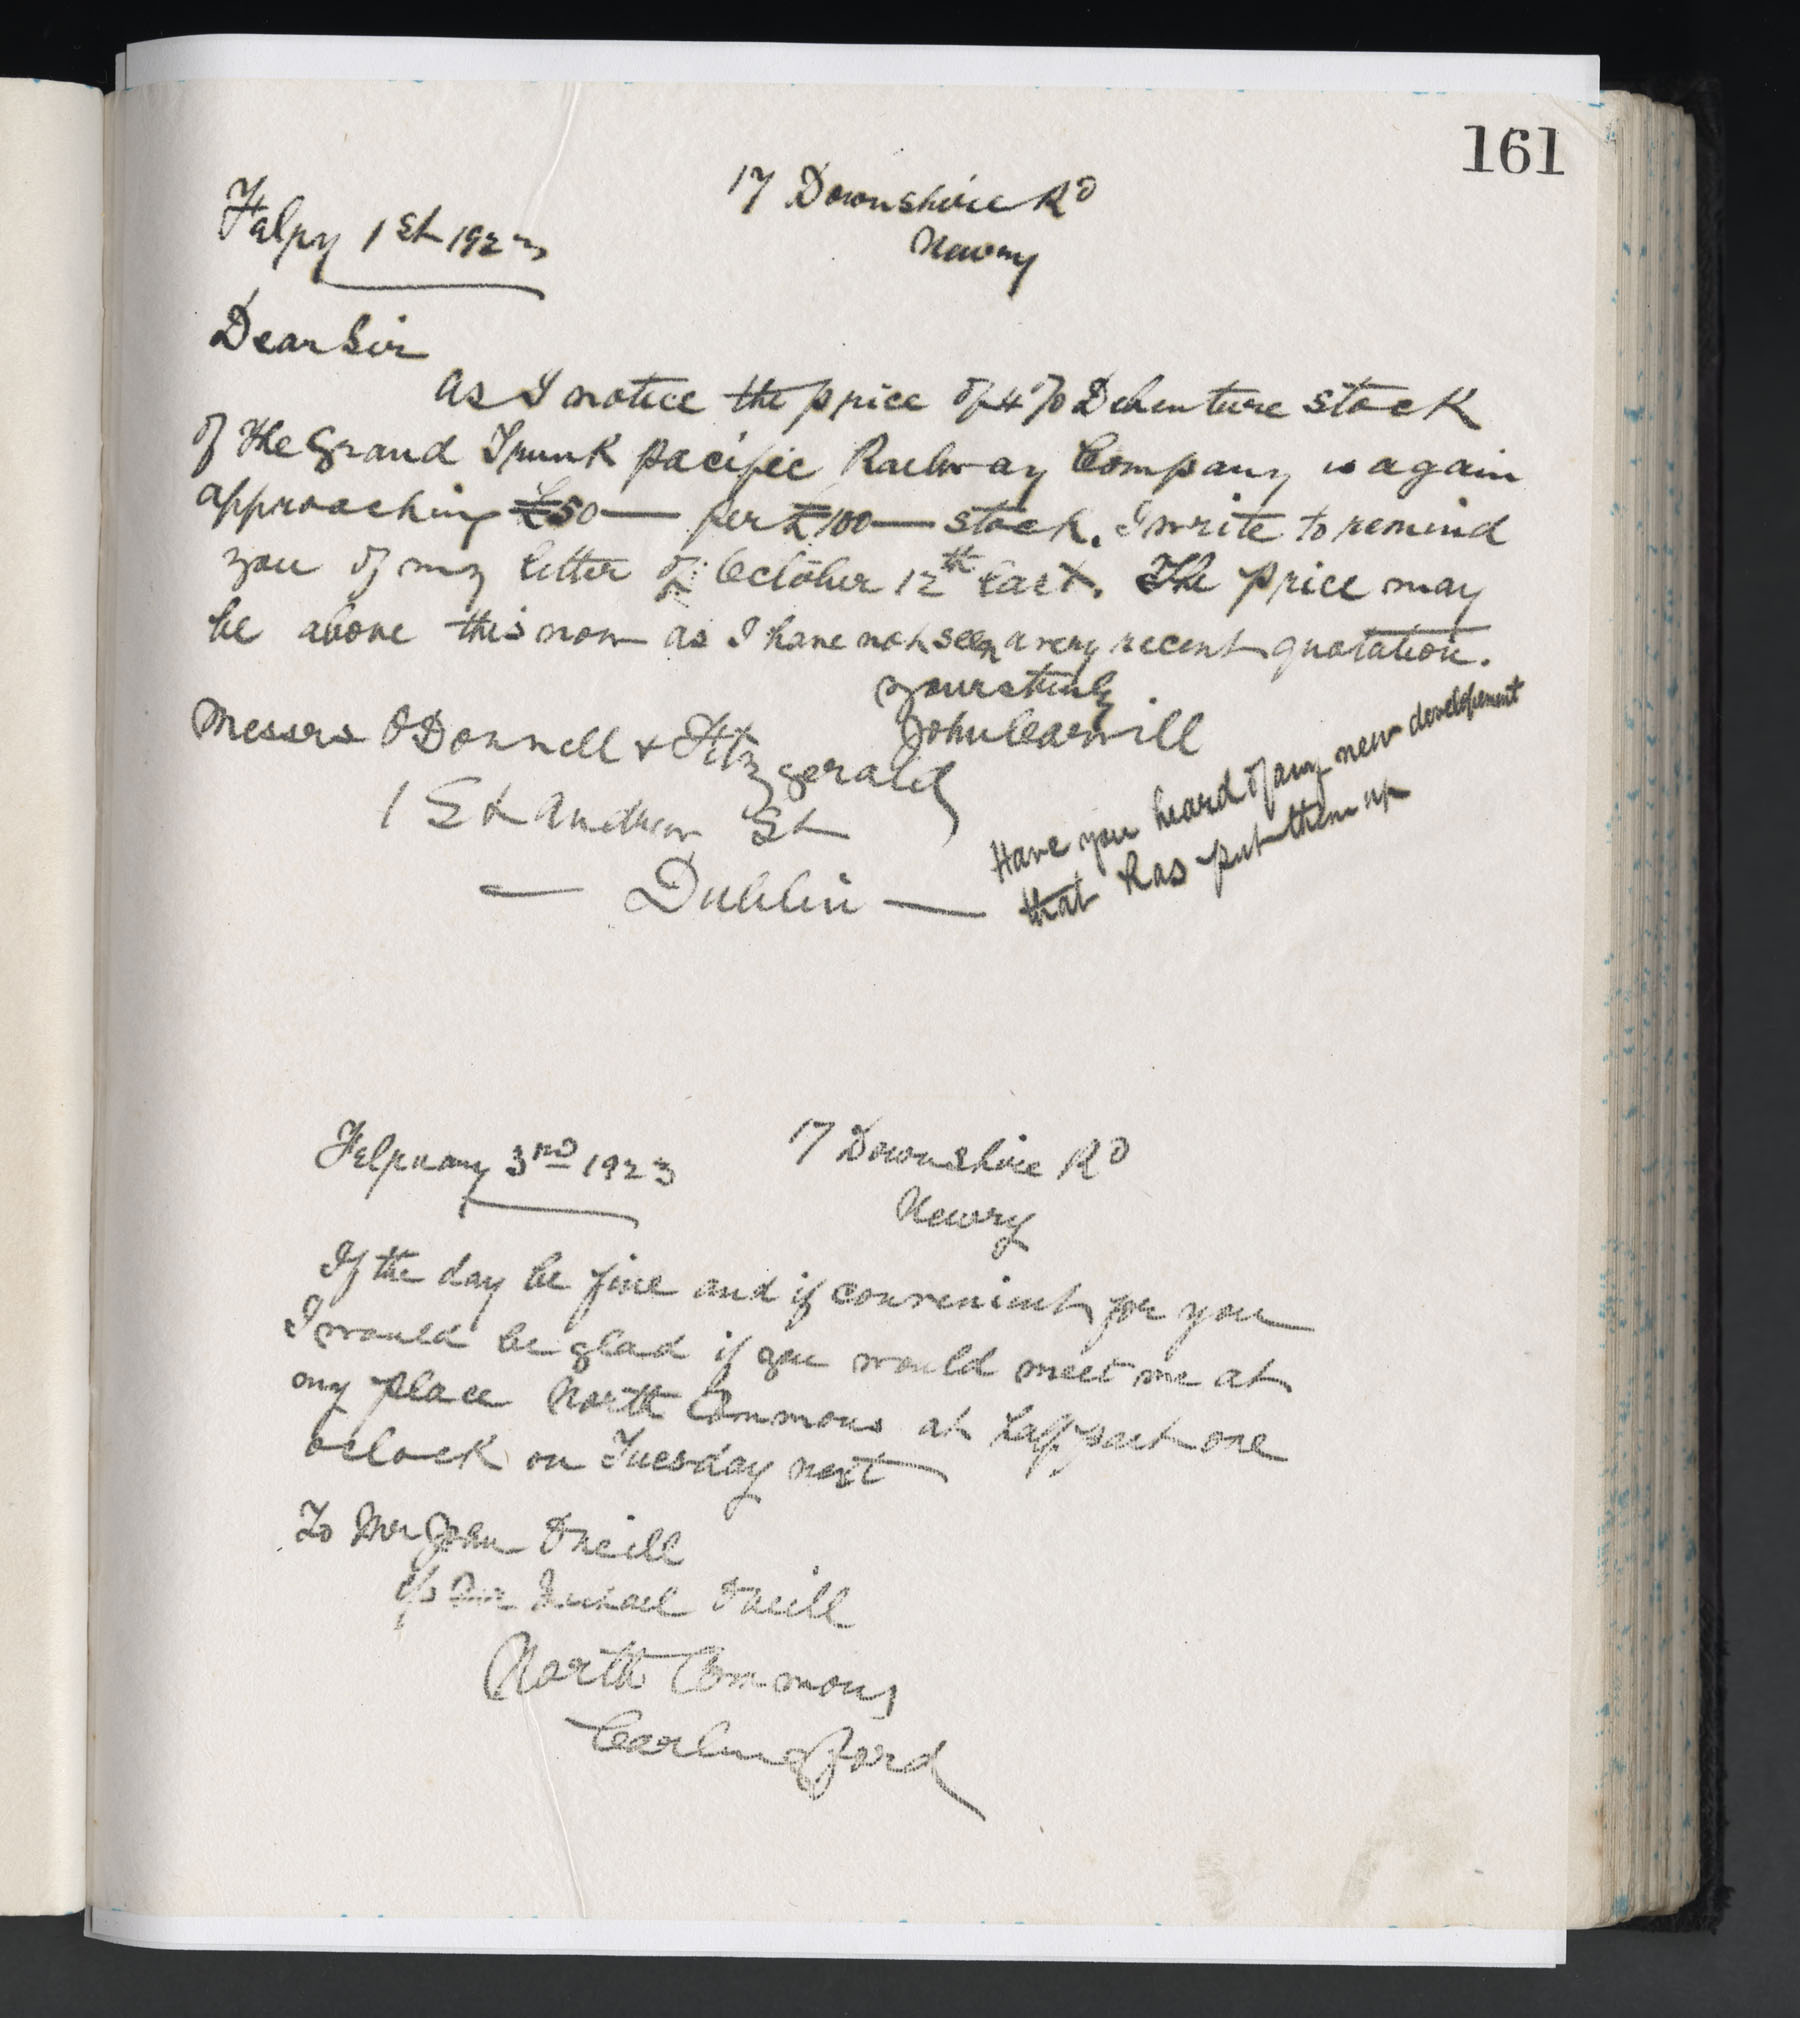 161
17 Downshire Rd
Newry
Febry 1st 1923
Dear Sir
As I notice the price of 4% Debenture stock
of the Grand Trunk Pacific Railway Company is again
approaching £50 — per £100 — stock. I write to remind
you of my letter of October 12th last. The price may
be above this now as I have not seen a very recent quotation.
yours truly
John Carvill
Messrs O'Donnell & Fitzgerald
1 St Andrew St
— Dublin —
Have you heard of any new development
that has put them up
February 3rd 1923
17 Downshire Rd
Newry
If the day be fine and if convenient for you
I would be glad if you would meet me at
my place North Commons at half past one
oclock on Tuesday next
To Mr John O'Neill
c/o Mr Michael O'Neill
North Commons
Carlingford